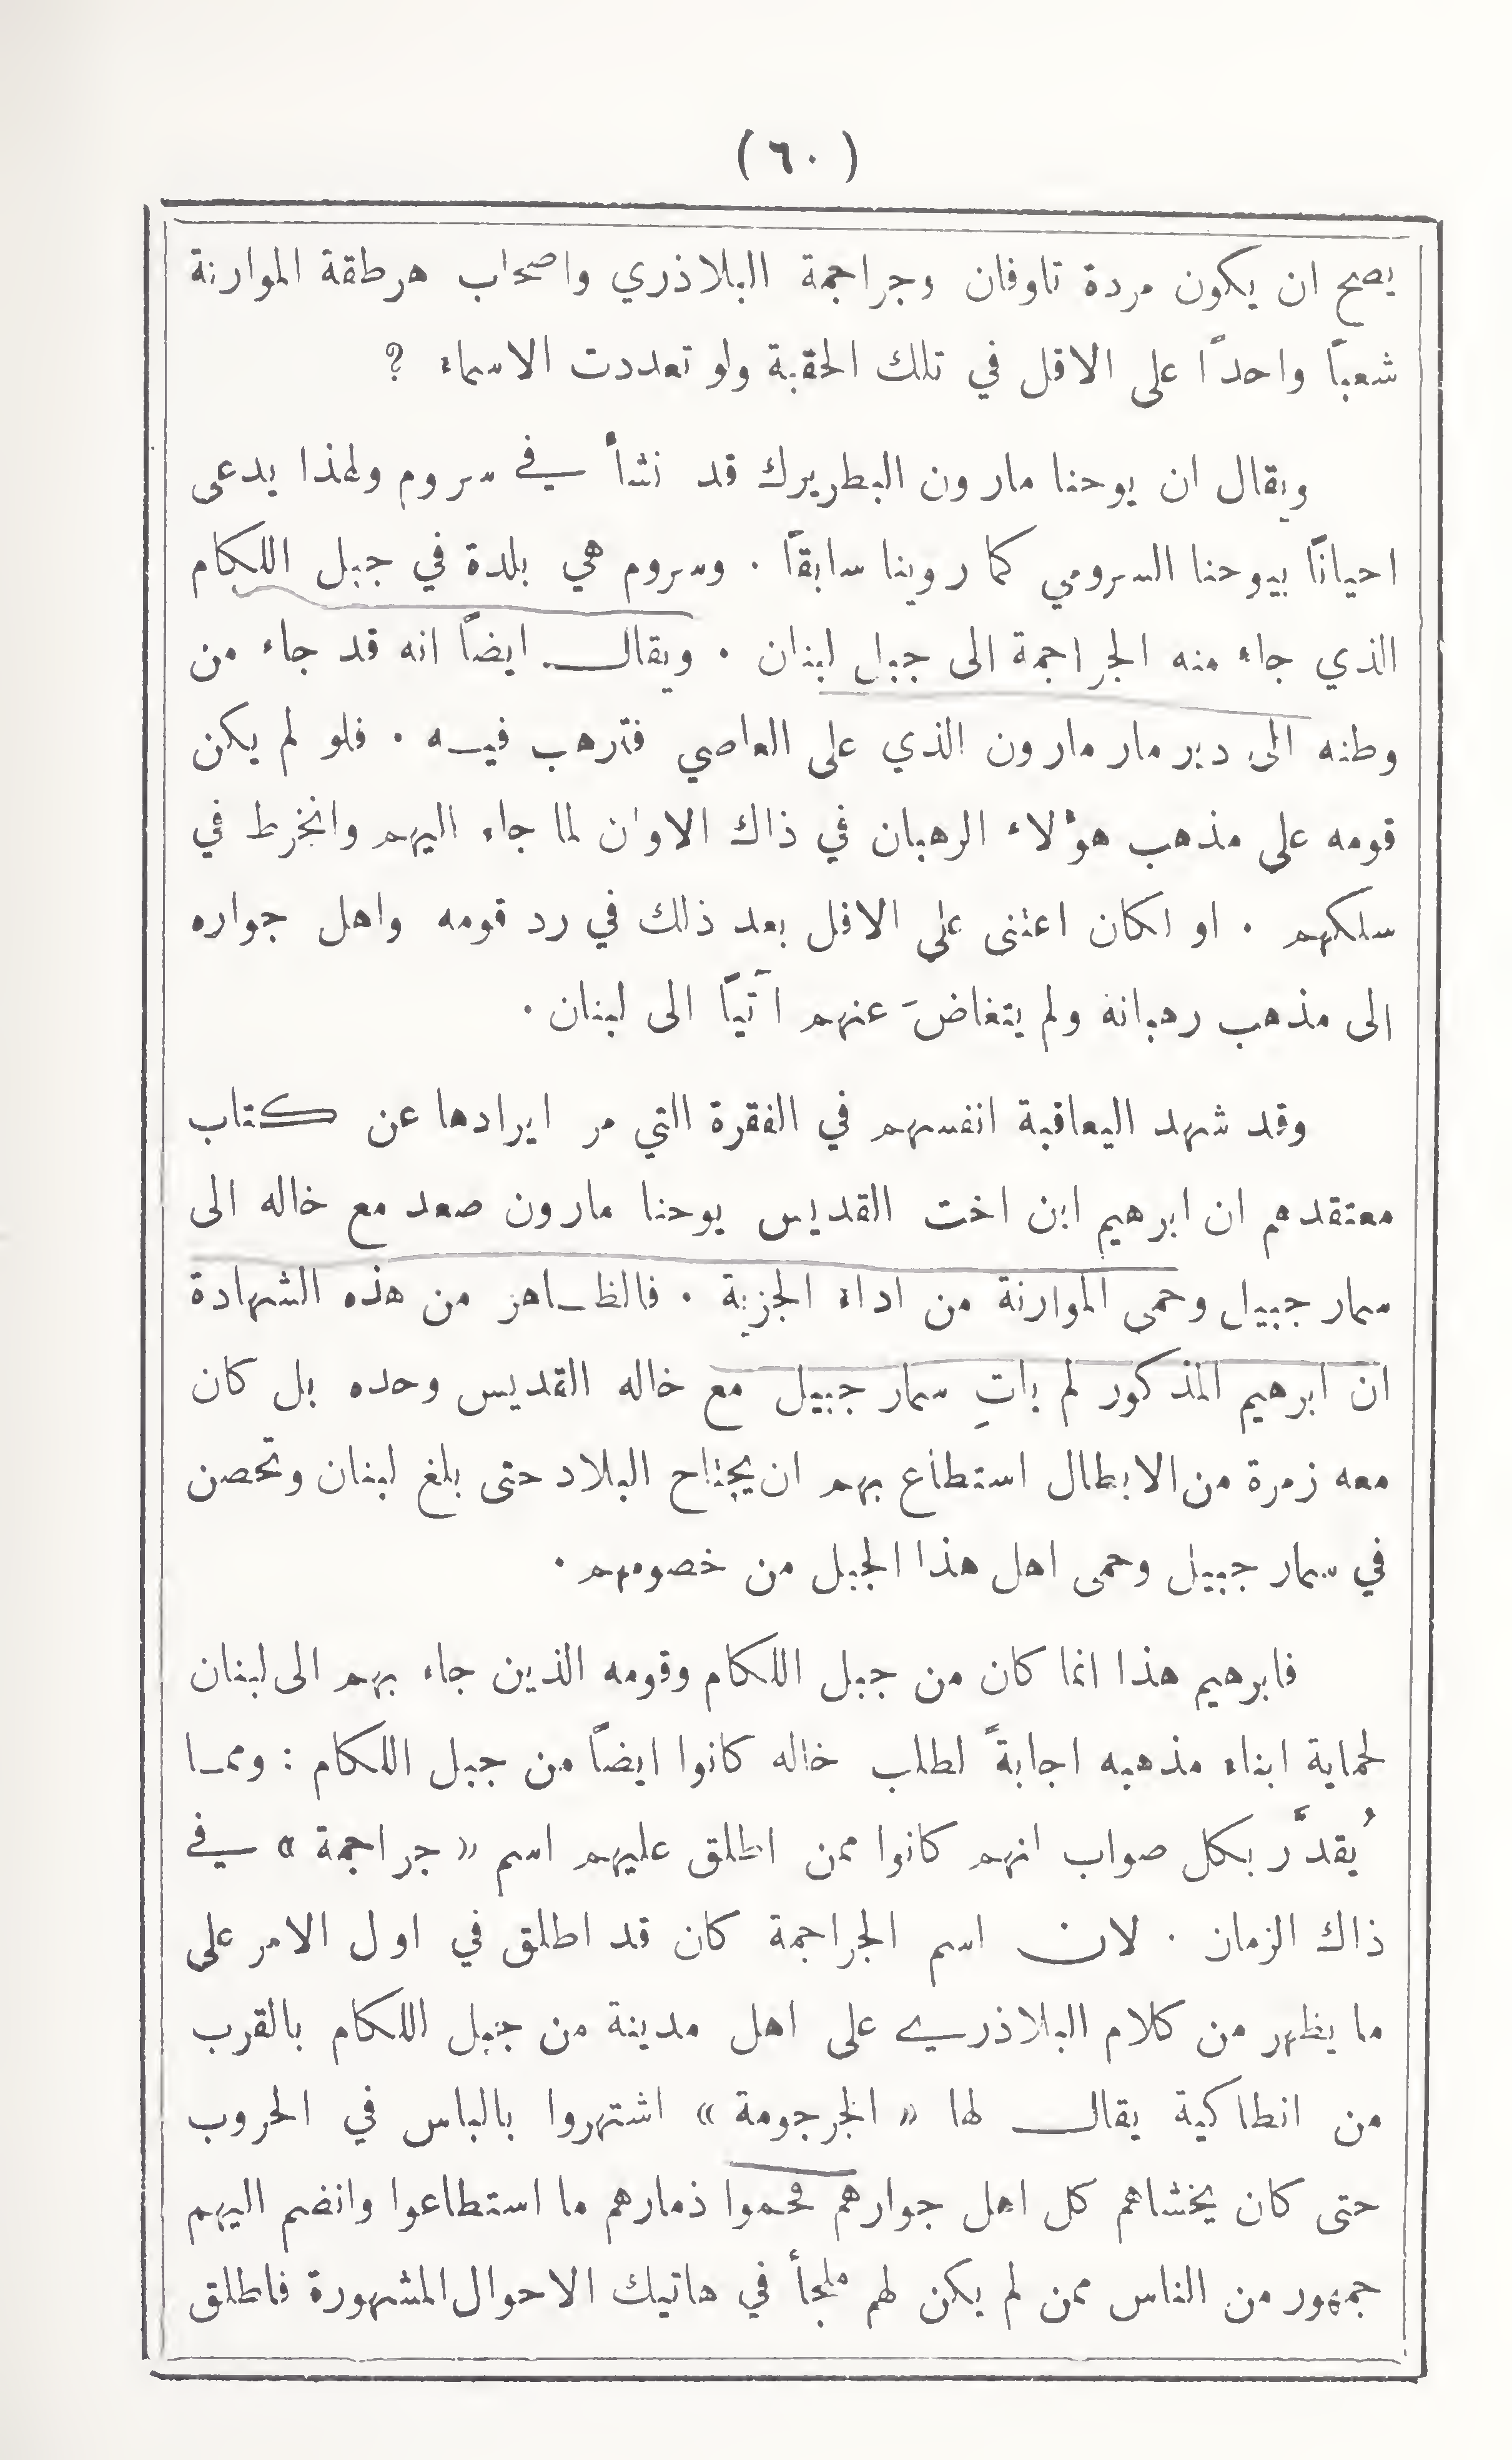 (٦٠)
يصح ان يكون مردة تاوفان وجراجمة البلاذري واصحاب هرطقة الموارنة
شعبًا واحدًا على الاقل في تلك الحقبة ولو تعددت الاسماء ?
ويقال ان يوحنا مارون البطريرك قد نشأ في سروم ولهذا يدعى
احيانًا بيوحنا السرومي كما روينا سابقًا . وسروم هي بلدة في جبل اللكام
الذي جاء منه الجراجمة الى جبل لبنان . ويقال ايضًا انه قد جاء من
وطنه الى دير مار مارون الذي على العاصي فترهب فيه . فلو لم يكن
قومه على مذهب هؤلاء الرهبان في ذاك الاوان لما جاء اليهم وانخرط في
سلكهم . او لكان اعتنى على الاقل بعد ذلك في رد قومه واهل جواره
الى مذهب رهبانه ولم يتغاضَ عنهم آتيًا الى لبنان .
وقد شهد اليعاقبة انفسهم في الفقرة التي مر ايرادها عن كتاب
معتقدهم ان ابرهيم ابن اخت القديس يوحنا مارون صعد مع خاله الى
سمار جبيل وحمى الموارنة من اداء الجزية . فالظاهر من هذه الشهادة
ان ابرهيم المذكور لم ياتِ سمار جبيل مع خاله القديس وحده بل كان
معه زمرة من الابطال استطاع بهم ان يجتاح البلاد حتى بلغ لبنان وتحصن
في سمار جبيل وحمى اهل هذا الجبل من خصومهم .
فابرهيم هذا انما كان من جبل اللكام وقومه الذين جاء بهم الى لبنان
لحماية ابناء مذهبه اجابةً لطلب خاله كانوا ايضًا من جبل اللكام : ومما
يُقدَّر بكل صواب انهم كانوا ممن اطلق عليهم اسم « جراجمة » في
ذاك الزمان . لان اسم الجراجمة كان قد اطلق في اول الامر على
ما يظهر من كلام البلاذري على اهل مدينة من جبل اللكام بالقرب
من انطاكية يقال لها « الجرجومة » اشتهروا بالباس في الحروب
حتى كان يخشاهم كل اهل جوارهم فحموا ذمارهم ما استطاعوا وانضم اليهم
جمهور من الناس ممن لم يكن لهم ملجأ في هاتيك الاحوال المشهورة فاطلق